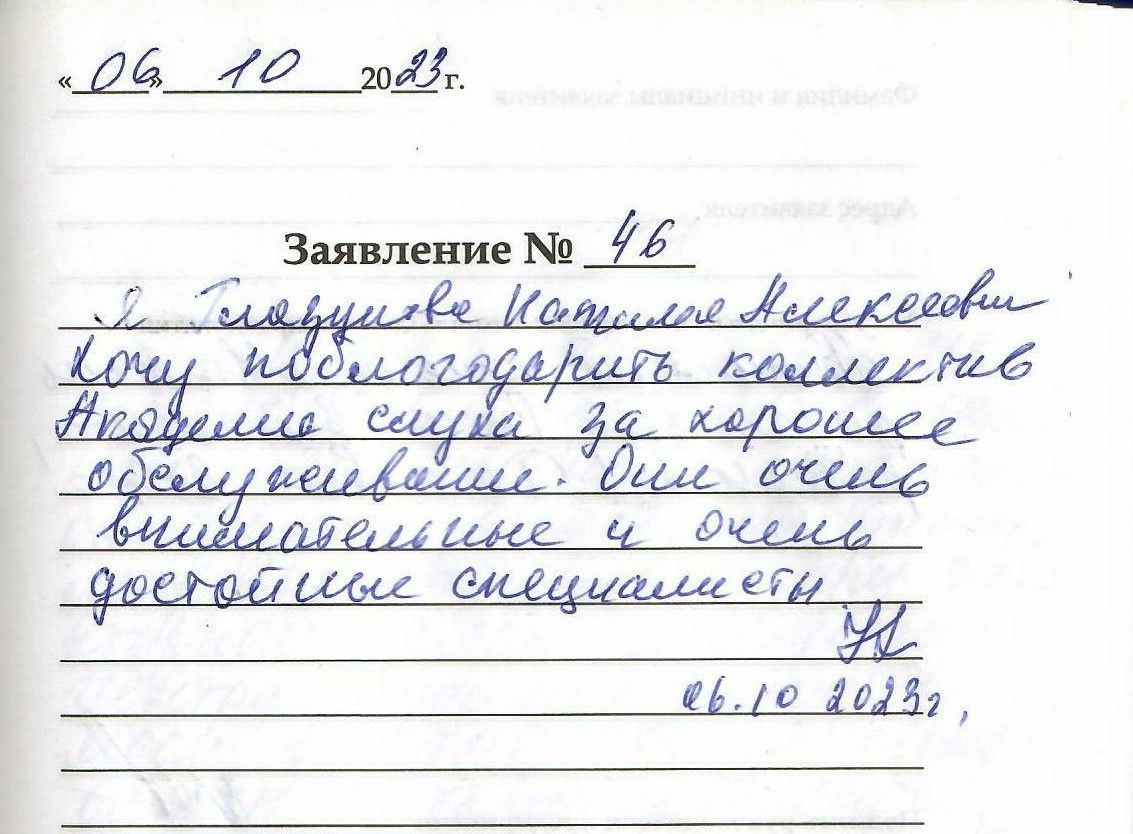 «06» 10 2023 г.
Заявление № 46
Я Глазунова Наталья Алексеевна
Хочу поблогодарить коллектив
Академию слуха за хорошее
обслуживание. Они очень
внимательные и очень
достойные специалисты
06.10 2023г,